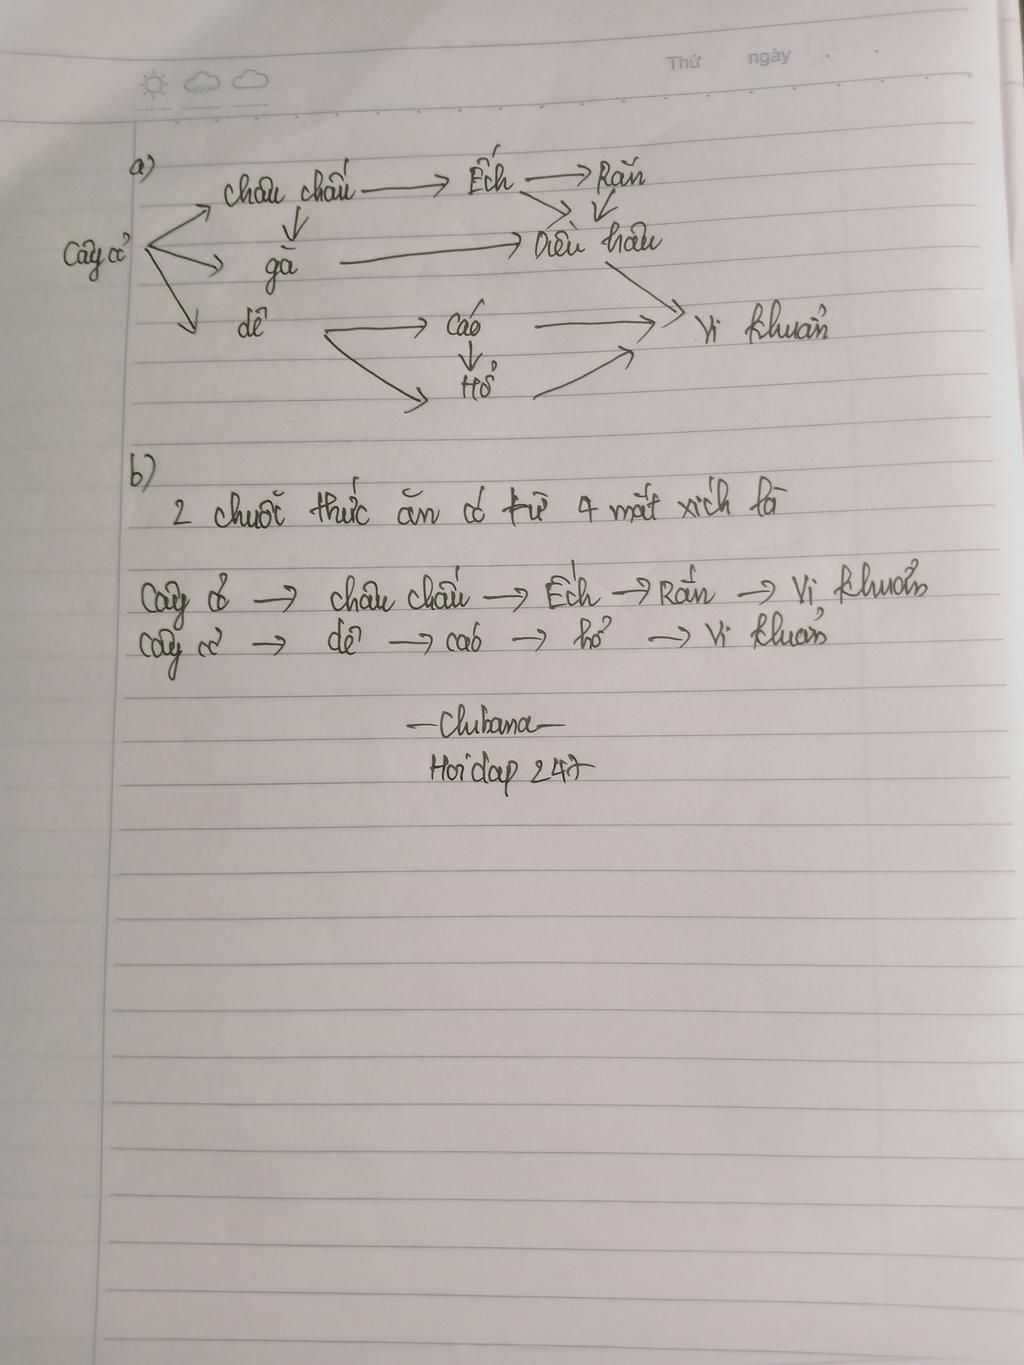 Thứ ngày
a)
châu chấu → Ếch → Rắn
Cây cỏ gà → Diều hâu
dê → Cáo → Vi khuẩn
Hổ
b)
2 chuỗi thức ăn có từ 4 mắt xích là
Cây cỏ → châu chấu → Ếch → Rắn → Vi khuẩn
Cây cỏ → dê → cáo → hổ → Vi khuẩn
Hoidap 247